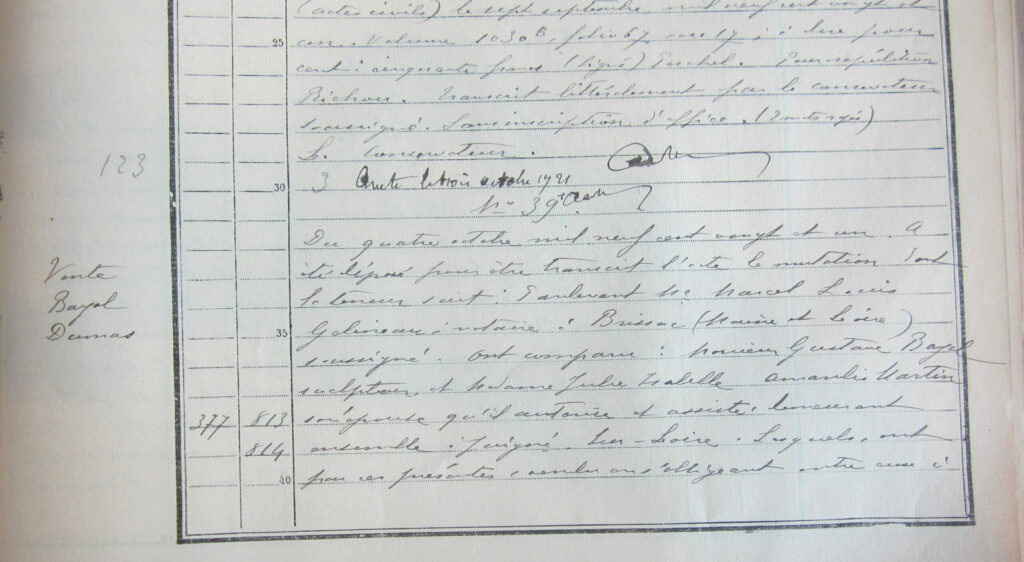 (actes civils) le sept septembre mil neuf cent vingt et
25 un. Volume 1030B, folio 67, case 17, à dire pour
cent : cinquante francs (signé) Pour répétition
Richou. Transcrit littéralement par le conservateur
soussigné. Sans inscription d'office. (2 mots rayés)
Le Conservateur.
123
30 3 Arrêté le trois octobre 1921
Du quatre octobre mil neuf cent vingt et un. A
Vente
été déposé pour être transcrit l'acte de mutation dont
Bayol
la teneur suit : Pardevant Me Marcel Louis
Dumas
35 Galineau, notaire à Brissac (Maine et Loire)
soussigné. Ont comparu : Monsieur Gustave Bayol
sculpteur, et Madame Julie Isabelle Amandis Martin
377 813 son épouse qu'il autorise et assiste, demeurant
814 ensemble Juigné sur-Loire. Lesquels, ont
40 par ces présentes, vendu en s'obligeant entre eux à